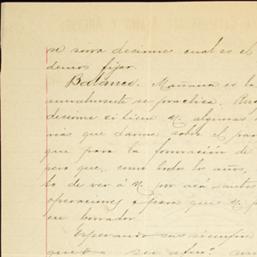 se sirva decirme cual es el
demos fijar.
Balance. Mañana es la
anualmente se practica. Rue
decirme si tiene V. algunas
más que darme sobre el pa
que para la formación de
pero que, como todos los años,
to de ver á V. por acá
operaciones y para que V. p
en borrador.
Esperando sus siempre